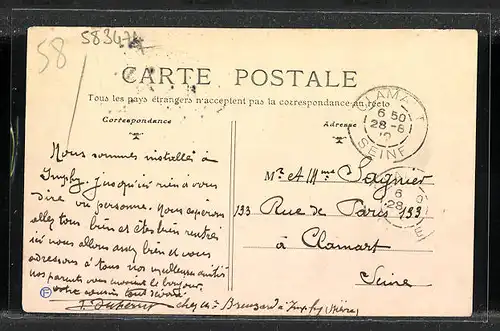 58
583474
CARTE POSTALE
Tous les pays étrangers n'acceptent pas la correspondance au recto
Correspondance
Adresse
CLAMART
6 50
28-8
SEINE
Nous sommes installés à
Imphy. Jusqu'ici rien a vous
dire vu personne. Nous espérons
allez tous bien et êtes bien rentrés
ici nous allons assez bien et vous
adressons à tous nos meilleures amitiés
nos parents vous le bonjour
votre cousin tout dévoué
chez Mr Breuzard à Imphy (Nièvre)
Mr et Mme Sagnier
133 Rue de Paris 133
à Clamart
Seine
6
28